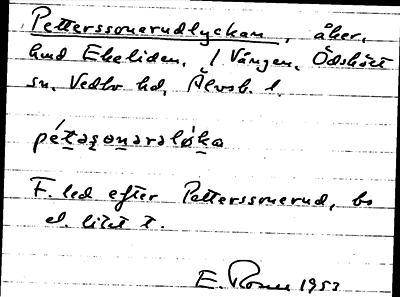 Petterssonerudlyckan, åker,
hmd Ekeliden, / Vången, Ödskölt
sn, Vedbo hd, Älvsb. l.
pétasonaraloka
F. led efter Petterssonerud, bs
el. litet t.
E. 1953